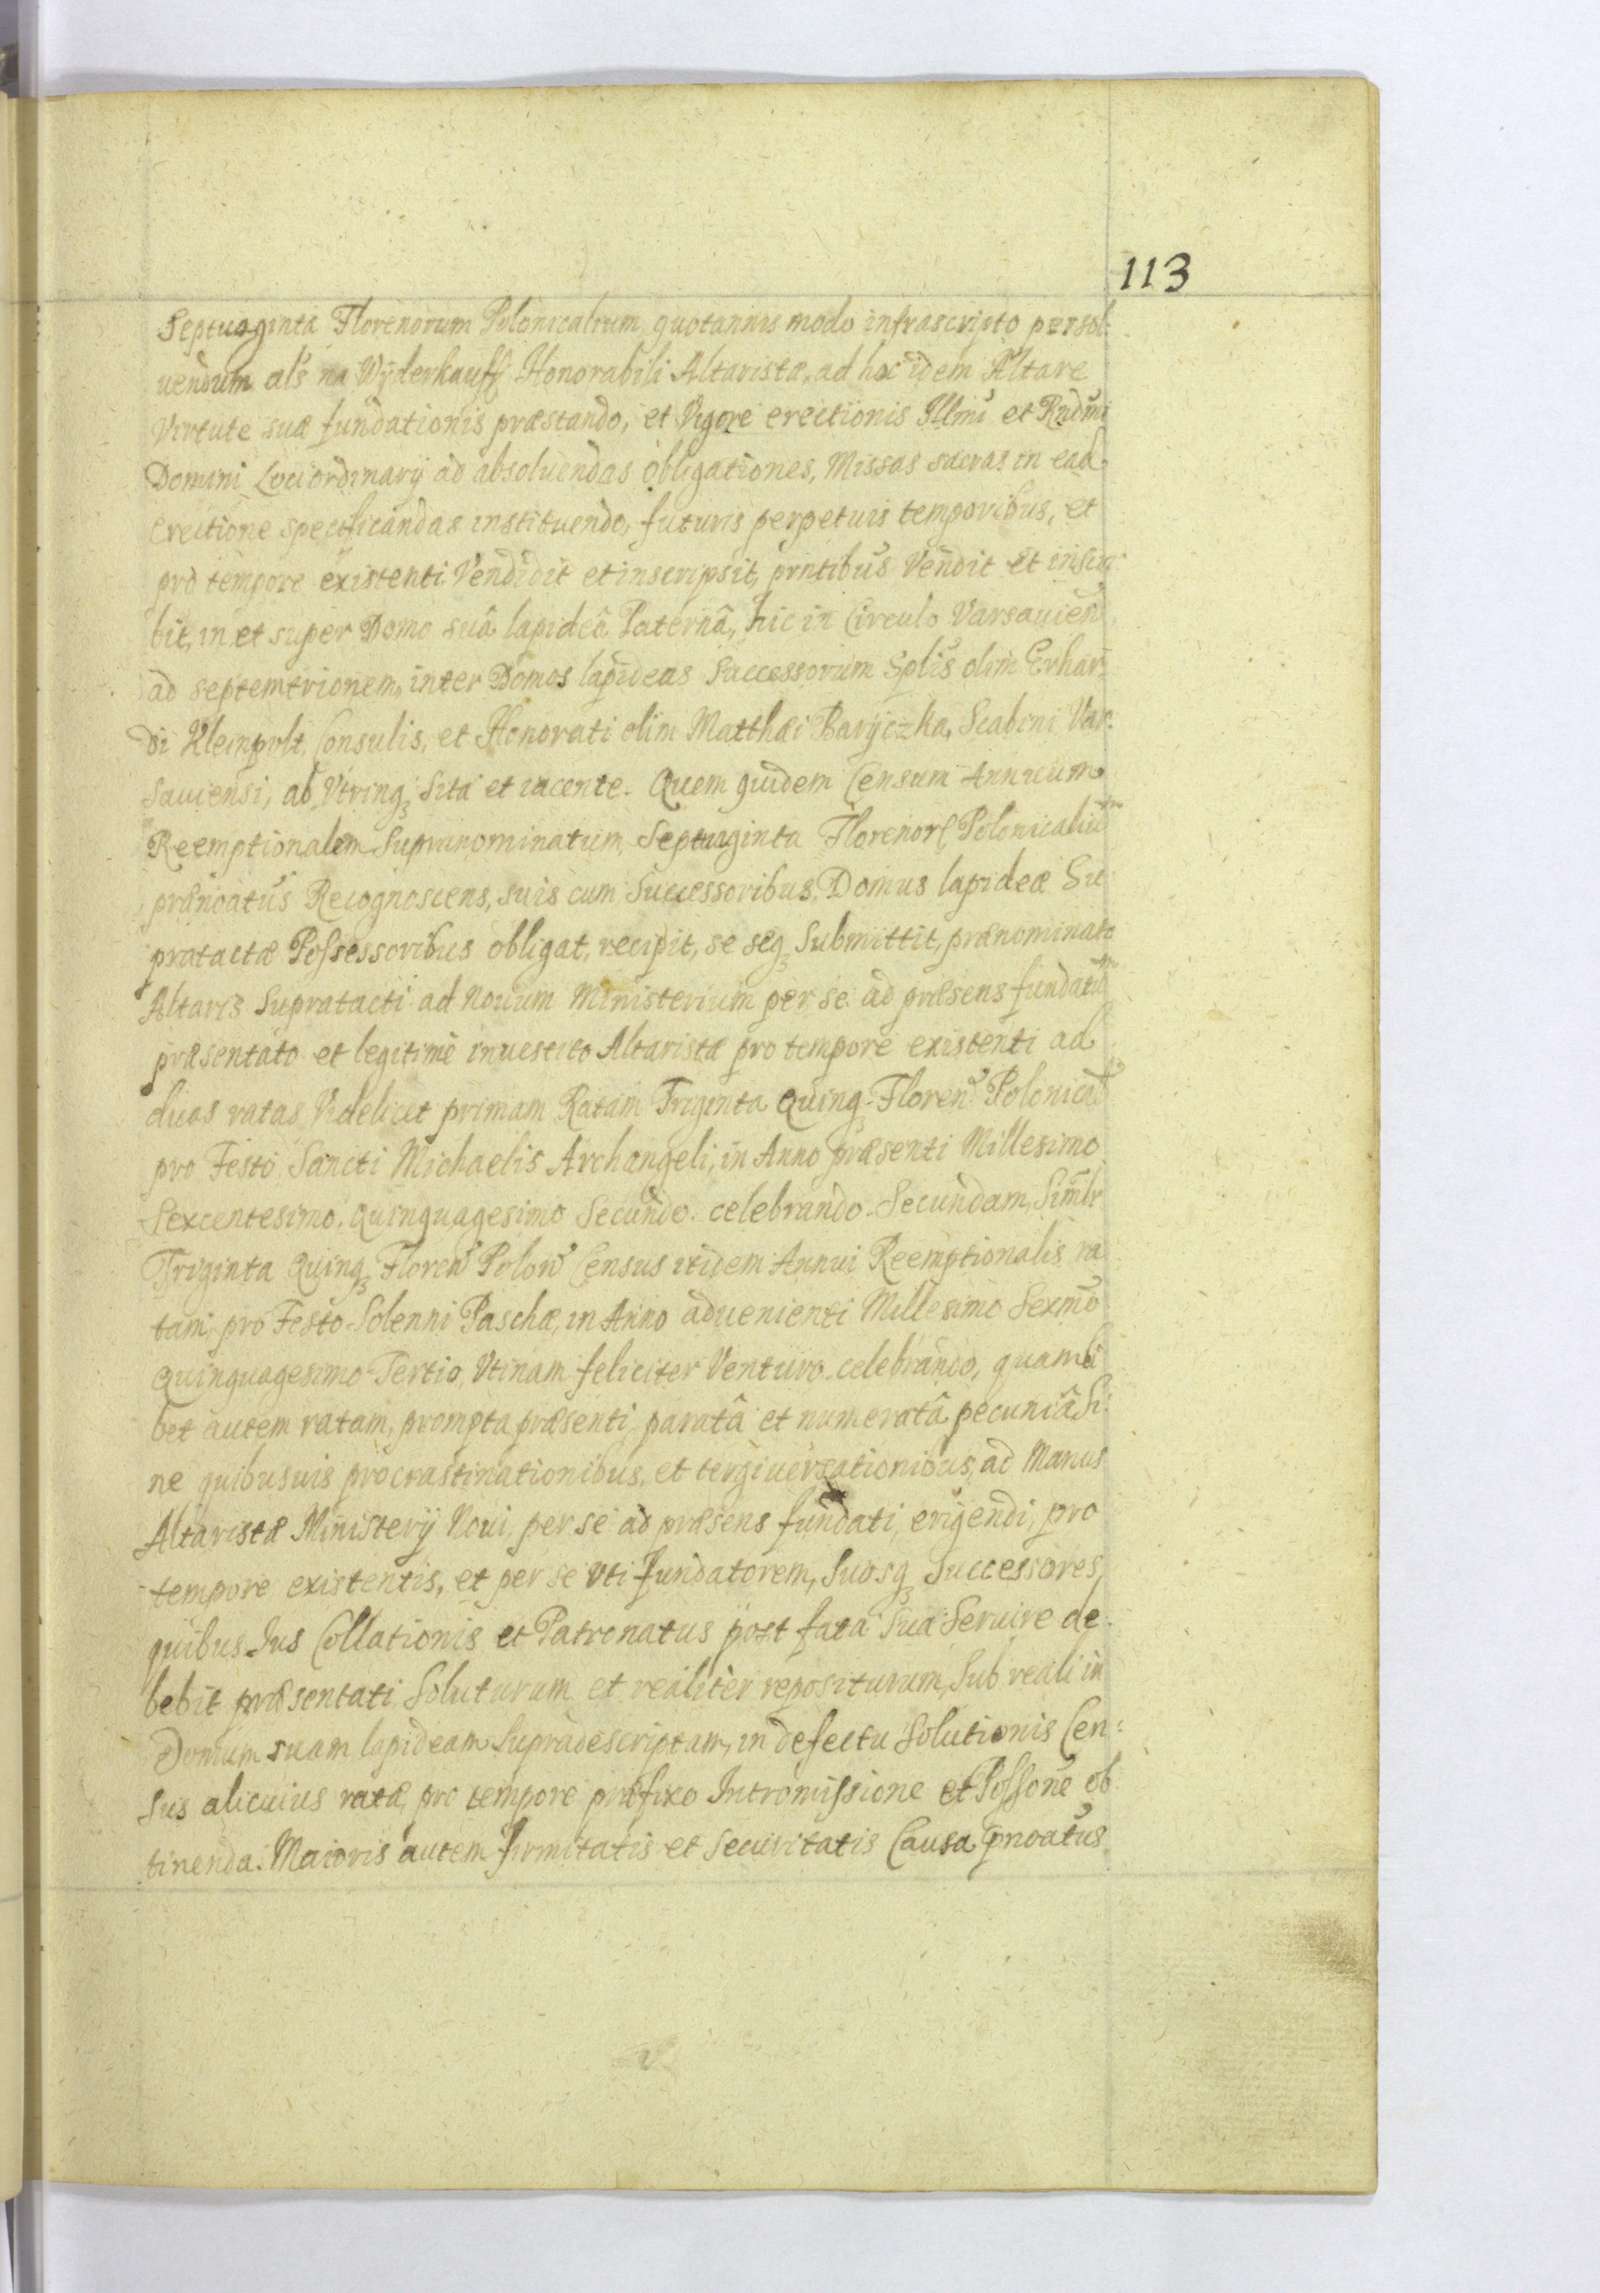 113
Septuaginta Florenorum Polonicalium quotannis modo infrascripto persol:
uendum als na Wÿderkauff Honorabili Altaristæ, ad hoc idem Altare
Virtute suæ fundationis præstando, et Vigore erectionis Illmi et Rndmi
Domini Lociordinarÿ ad absoluendas obligationes, Missas sacras in ead
erectione specificandas instituendo, futuris perpetuis temporibus, et
pro tempore existenti Vendidit et inscripsit, prntibus Vendit et inscri
bit, in et super Domo suâ lapideâ Paternâ, hic in Circulo Varsauien
ad septemtrionem, inter Domos lapideas Successorum Splis olim Erhar
di Kleinpolt, Consulis, et Honorati olim Matthæi Barÿczka, Scabini Var:
sauiensi, ab Vtrinq sita et iacente. Quem quidem Censum Annuum
Reemptionalem Supranominatum Septuaginta Florenor Polonicaliu
prænoatus Recognoscens, suis cum Successoribus, Domus lapideæ Su
pratactæ Possessoribus obligat, recipit, se seq Submittit, prænominato
Altaris Supratacti ad Nouum Ministerium per se ad præsens fundatu
præsentato et legitimè inuestito Altaristæ pro tempore existenti ad
duas ratas Videlicet primam Ratam Triginta Quinq Floren Polonical
pro Festo Sancti Michaelis Archangeli, in Anno præsenti Millesimo
Sexcentesimo, Quinquagesimo Secundo celebrando. Secundam, Simlr
Triginta Quinq Floren Polon Census itidem Annui Reemptionalis ra
tam, pro Festo Solenni Paschæ, in Anno aduenienti Millesimo Sexmo
Quinquagesimo Tertio, Vtinam feliciter Venturo celebrando, quamli
bet autem ratam, prompta præsenti, paratâ et numeratâ pecuniâ Si:
ne quibusuis procrastinationibus, et tergiuersationibus, ad Manus
Altaristæ Ministerÿ Noui, per se ad præsens fundati, erigendi, pro
tempore existentis, et per se vti Fundatorem, Suosq Successores,
quibus Ius Collationis et Patronatus post fata Sua Seruire de
bebit præsentati Soluturum et realitèr repositurum, Sub reali in
Domum suam lapideam Supradescriptam, in defectu Solutionis Cen:
sus alicuius ratæ, pro tempore præfixo Intromissione et Possone ob
tinenda. Maioris autem firmitatis et securitatis Causa pnoatus